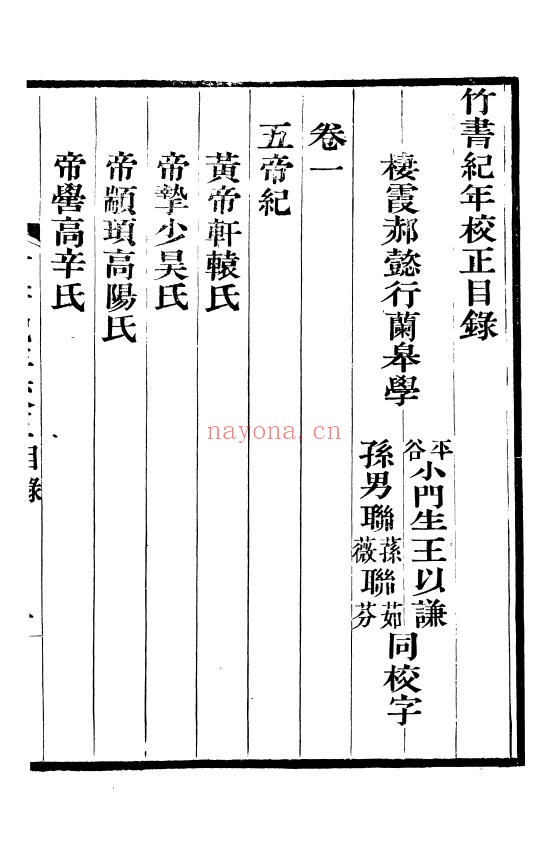 竹書紀年校正目錄
棲霞郝懿行蘭皋學
平谷小門生王以謙
孫男聯蓀聯茹
薇 芬
同校字
卷一
五帝紀
黃帝軒轅氏
帝摯少昊氏
帝顓頊高陽氏
帝嚳高辛氏
目錄
一
nayona.cn